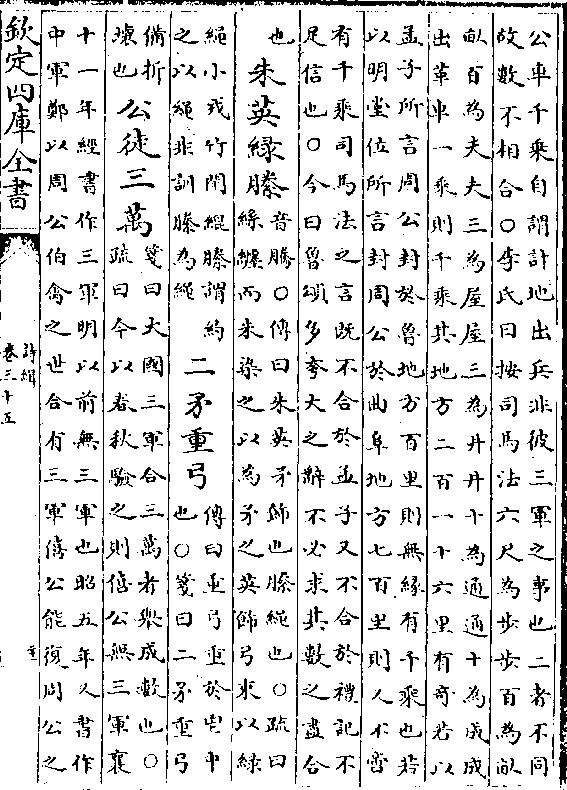 公車千乘自謂計地出兵非彼三軍之事也二者不同
故數不相合○李氏曰按司馬法六尺為步步百為畝
畝百為夫夫三為屋屋三為井井十為通通十為成成
出革車一乘則千乘其地方三百一十六里有奇若以
孟子所言周公封於魯地方百里則無緣有千乘也若
以明堂位所言封周公於曲阜地方七百里則又不啻
有千乘司馬法之言既不合於孟子又不合於禮記不
足信也○今曰魯頌多夸大之辭不必求其數之盡合
也
朱英綠縢音騰○傳曰朱英矛飾也縢繩也○疏曰
絲纏而朱染之以為矛之英飾弓束以綠
繩小戎竹閉緄縢謂約
之以繩非訓縢為繩
二矛重弓傳曰重弓重於鬯中
也○箋曰二矛重弓
備折
壞也
公徒三萬箋曰大國三軍合三萬者舉成數也○
疏曰今以春秋驗之則僖公無三軍襄
十一年經書作三軍明以前無三軍也昭五年又書作
中軍鄭以周公伯禽之世合有三軍僖公能復周公之
欽定四庫全書
詩緝
卷三十五